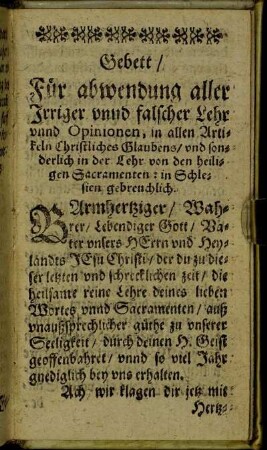 Gebett /
Für abwendung aller
Irriger vnnd falscher Lehr
vnnd Opinionen, in allen Arti-
keln Christliches Glaubens / vnd son-
derlich in der Lehr von den heili-
gen Sacramenten: in Schle-
sien gebreuchlich.
BArmhertziger / Wah-
rer / Lebendiger Gott / Va-
ter vnsers HErrn vnd Hey-
landts JEsu Christi / der du zu die-
ser letzten vnd schrecklichen zeit / die
heilsame reine Lehre deines lieben
Wortes vnnd Sacramenten / auß
vnaußsprechlicher güthe zu vnserer
Seeligkeit / durch deinen H. Geist
geoffenbahret / vnnd so viel Jahr
gnediglich bey vns erhalten.
Ach wir klagen dir jetz mit
Hertz-